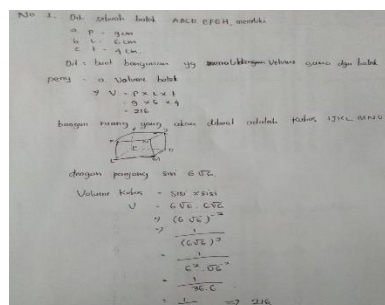 No 1. Dik sebuah balok ABCD.EFGH, memiliki
a. p = 9 cm
b. l = 6 cm
c. t = 4 cm
Dit : buat bangunan yg volume sama dgn balok
peny = a. Volume balok
⇒ V = p x l x t
= 216
bangun ruang yang akan dibuat adalah kubus IJKL MNO
dengan panjang sisi 6√6
Volume kubus = sisi x sisi
V = 6√6 . 6√6
⇒ (6√6)⁻²
⇒ 1 / (6√6)²
= 1 / 6² . √6²
= 1 / 36.6
⇒ 216